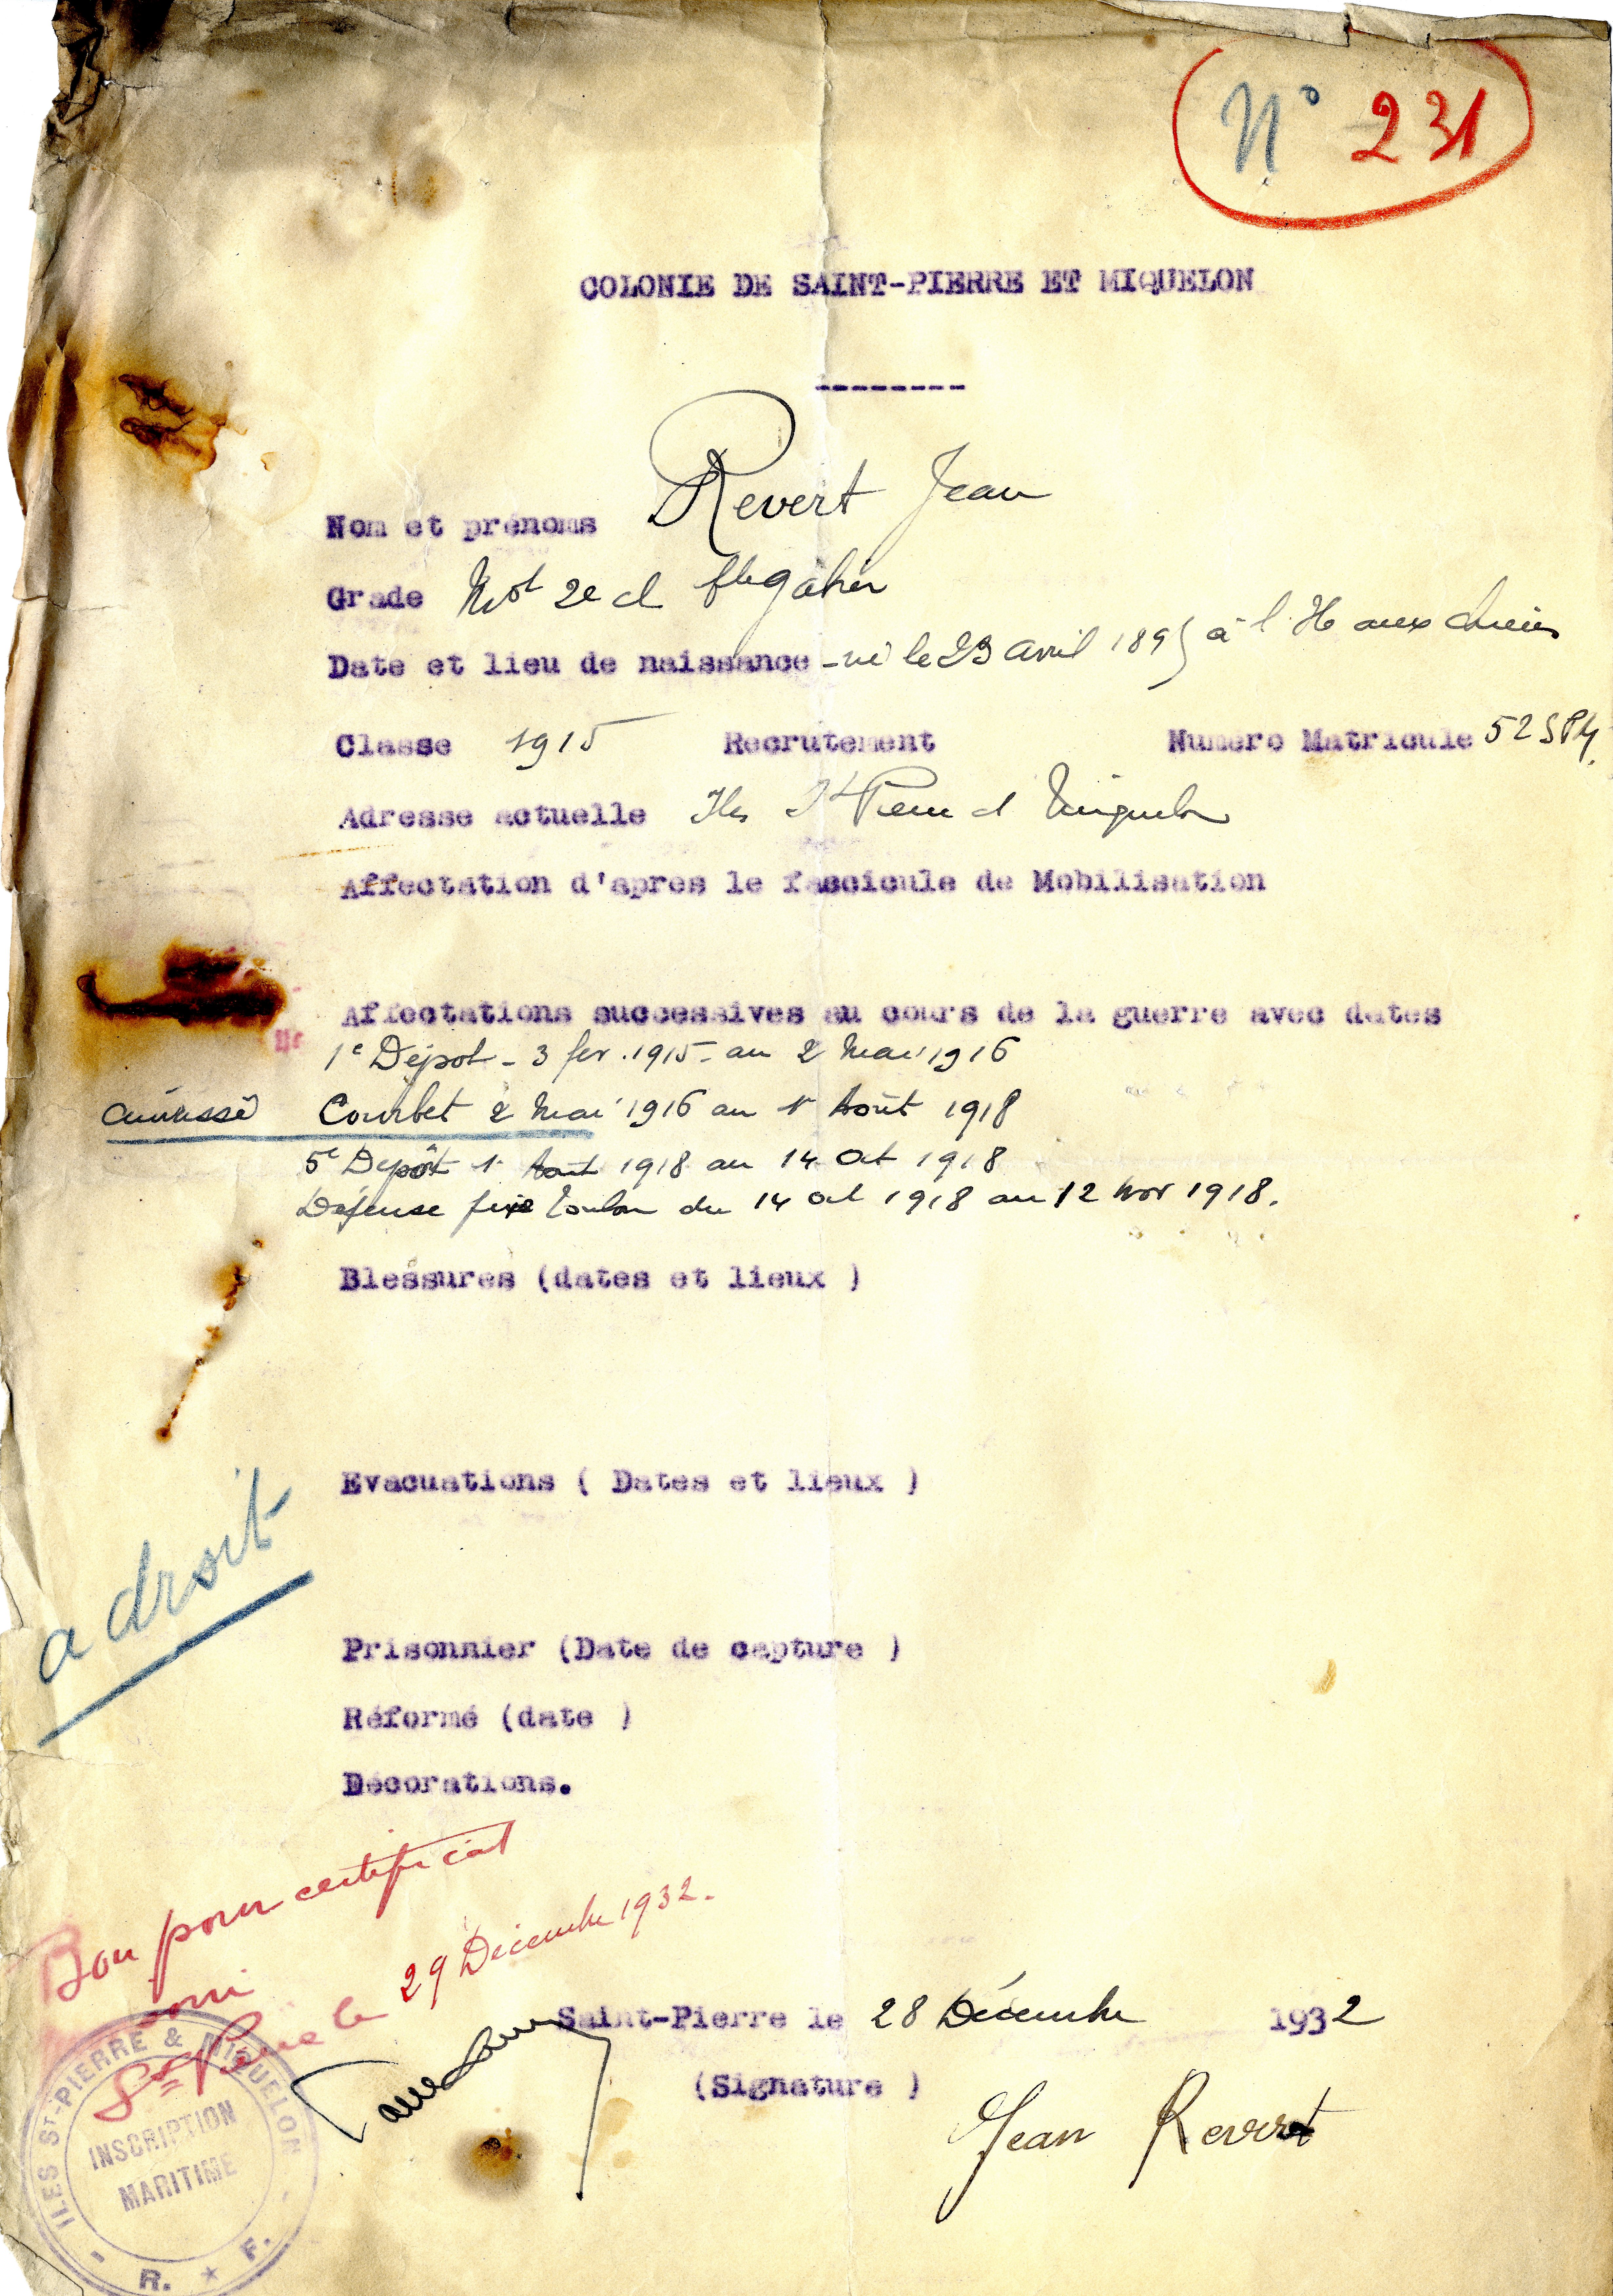 N° 231
COLONIE DE SAINT-PIERRE ET MIQUELON
--------
Nom et prénoms Revert Jean
Grade Mot 2e cl
Date et lieu de naissance - né le 23 avril 1895 à l'I aux chiens
Classe 1915 Recrutement Numéro Matricule 52 SPM.
Adresse actuelle Iles St Pierre et Miquelon
Affectation d'apres le fascicule de Mobilisation
Affectations successives au cours de la guerre avec dates
1e Dépot - 3 fev. 1915 - au 2 Mai 1916
cuirassé Courbet 2 Mai 1916 au 1r Août 1918
5e Dépôt 1r Août 1918 au 14 Oct 1918
Défense fixe Toulon du 14 oct 1918 au 12 Nov 1918.
Blessures (dates et lieux )
Evacuations ( Dates et lieux )
a droit
Prisonnier (Date de capture )
Réformé (date )
Décorations.
Bon pour certificat
St Pierre le 29 Décembre 1932.
Saint-Pierre le 28 Décembre 1932
(Signature )
Jean Revert
ILES ST-PIERRE & MIQUELON
INSCRIPTION
MARITIME
- R. ★ F. -